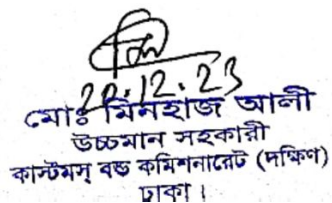 20.12.23
মোঃ মিনহাজ আলী
উচ্চমান সহকারী
কাস্টমস্ বন্ড কমিশনারেট (দক্ষিণ)
ঢাকা।